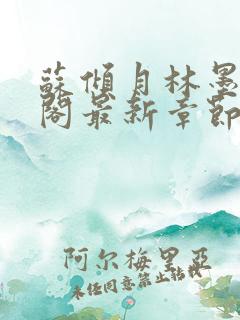 蘇傾月林墨
閣最新章節
阿尔梅里亞
未经同意禁止转载